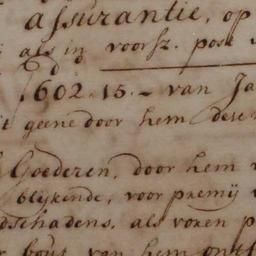 assurantie, op
als in voorsz. post
1602.15.- van Ja
t geene door hem dese
Goederen, door hem
blijkende, voor premij
dschadens, als voren p
van hem ont